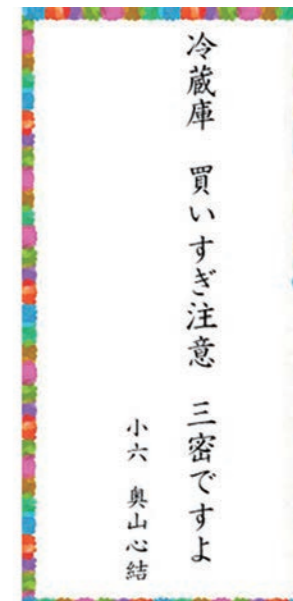 冷蔵庫　買いすぎ注意　三密ですよ
小六　奥山心結